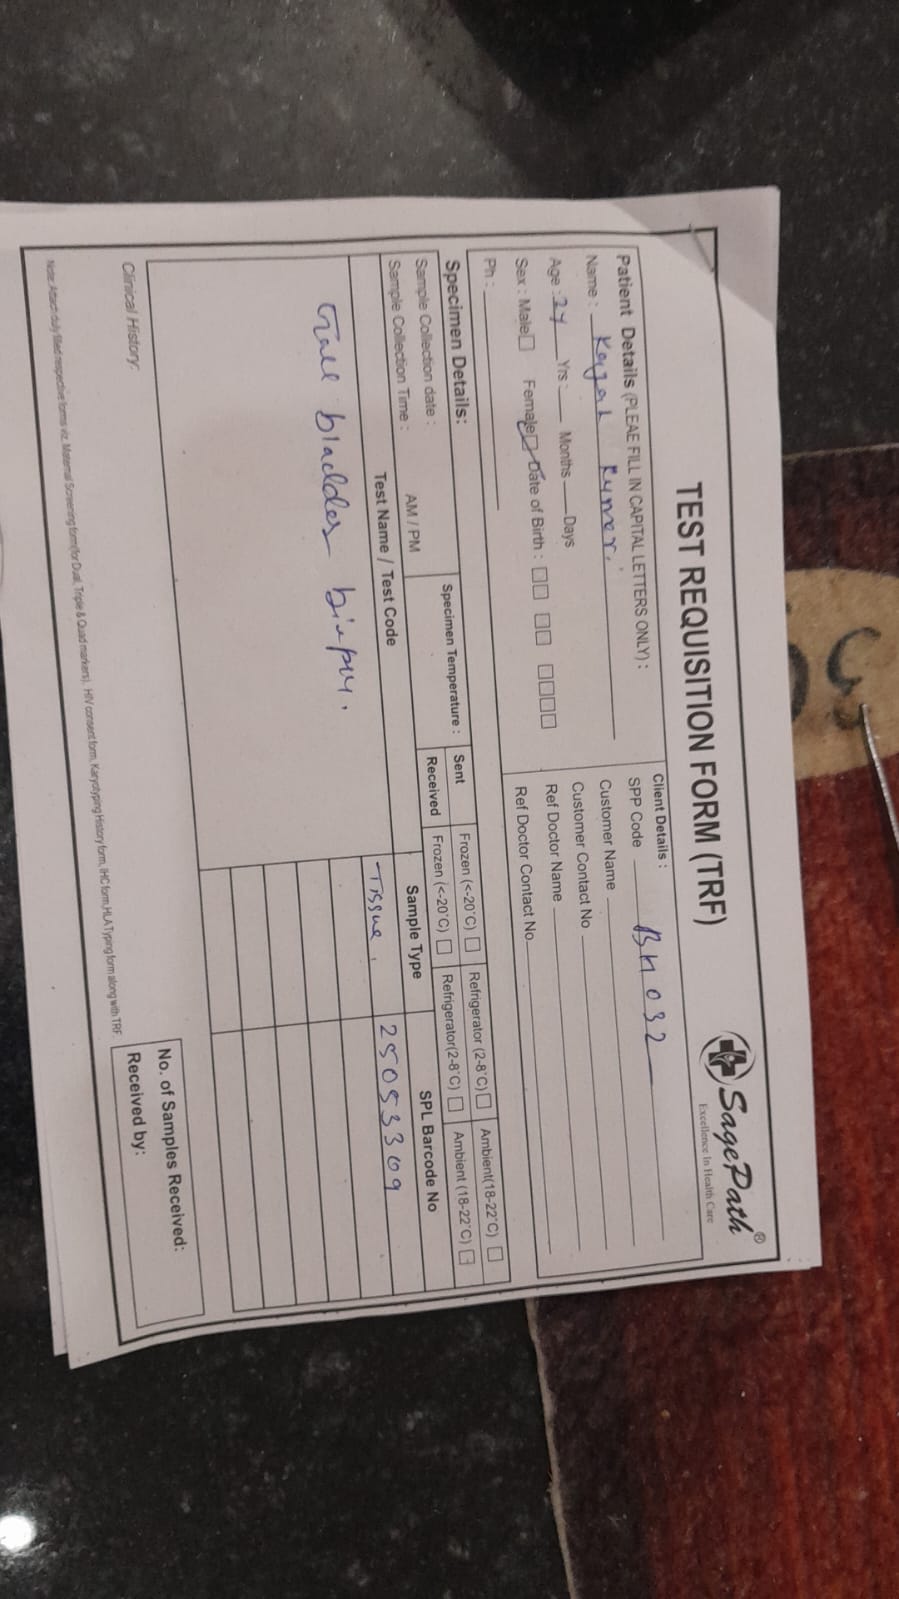 TEST REQUISITION FORM (TRF)
SagePath®
Excellence In Health Care
Patient Details (PLEAE FILL IN CAPITAL LETTERS ONLY) :
Name :
Age : 24 Yrs : Months Days
Sex : Male Female Date of Birth :
Ph :
Client Details :
SPP Code BH032
Customer Name
Customer Contact No
Ref Doctor Name
Ref Doctor Contact No
Specimen Details:
Sample Collection date :
Sample Collection Time : AM / PM
Specimen Temperature :
Sent Frozen (<-20°C) Refrigerator (2-8°C) Ambient(18-22°C)
Received Frozen (<-20°C) Refrigerator(2-8°C) Ambient (18-22°C)
Test Name / Test Code Sample Type SPL Barcode No
Gall bladder Tissue
Clinical History:
No. of Samples Received:
Received by:
Note: Attach duly filled respective forms viz. Maternal Screening form(for Dual, Triple & Quad markers), HIV consent form, Karyotyping History form, IHC form,HLA Typing form along with TRF.